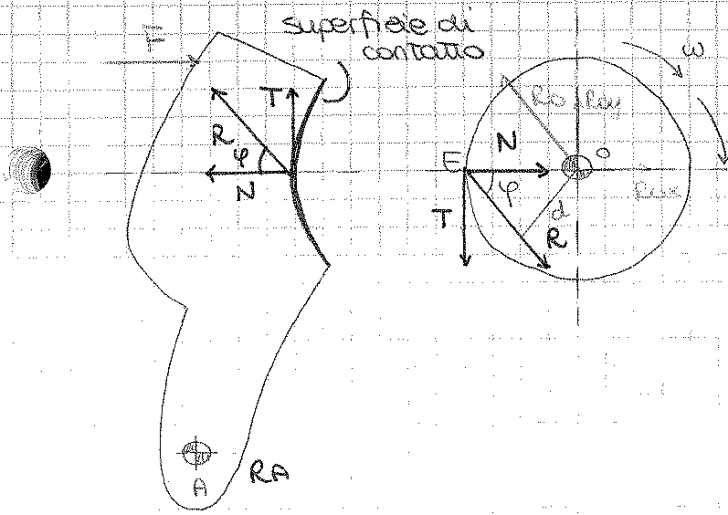 superficie di
contatto
F
T
R
φ
N
A
RA
ω
Ro
Roy
E
N
O
φ
Rox
d
T
R